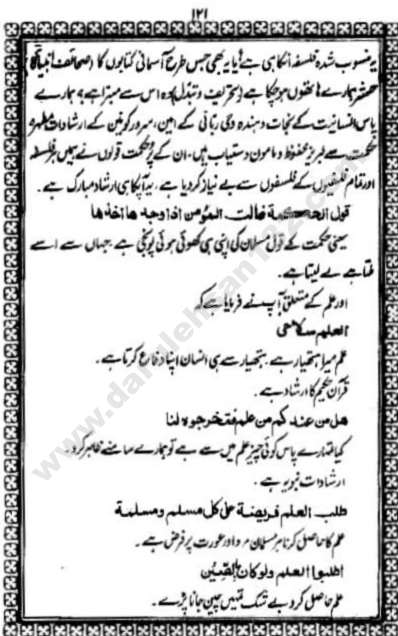 ۱۲۱
یہ منسوب شدہ فلسفہ انکا ہی ہے؟ یا یہ بھی جس طرح آسمانی کتابوں کا (صحائف انبیاؑ کا)
حشر ہمارے ہاتھوں ہو چکا ہے (تحریف و تبدل) وہ اس سے مبرا ہے؟ ہمارے
پاس انسانیت کے نجات دہندہ وحی ربانی کے امین، سرور کونین کے ارشادات علم و
حکمت سے لبریز محفوظ و مامون دستیاب ہیں۔ ان کے پُر حکمت قولوں نے ہمیں ہر فلسفہ
اور تمام فلسفیوں کے فلسفوں سے بے نیاز کر دیا ہے۔ یہ آپکا ہی ارشاد مبارک ہے۔
قول الحكمة ضالت المؤمن اذا وجدها اخذها
یعنی حکمت کے قول مسلمان کی اپنی ہی کھوئی ہوئی پونجی ہے، جہاں سے اسے
ملتا ہے لے لیتا ہے۔
اور علم کے متعلق آپ نے فرمایا ہے کہ
العلم سلاحی
علم میرا ہتھیار ہے۔ ہتھیار سے ہی انسان اپنا دفاع کرتا ہے۔
قرآن حکیم کا ارشاد ہے۔
هل من عندكم من علم فتخرجوه لنا
کیا تمہارے پاس کوئی چیز علم میں سے ہے تو ہمارے سامنے ظاہر کرو۔
ارشادات نبویہ ہے۔
طلب العلم فريضة على كل مسلم ومسلمة
علم کا حاصل کرنا ہر مسلمان مرد اور عورت پر فرض ہے۔
اطلبوا العلم ولوكان بالصين
علم حاصل کرو بے شک تمہیں چین جانا پڑے۔